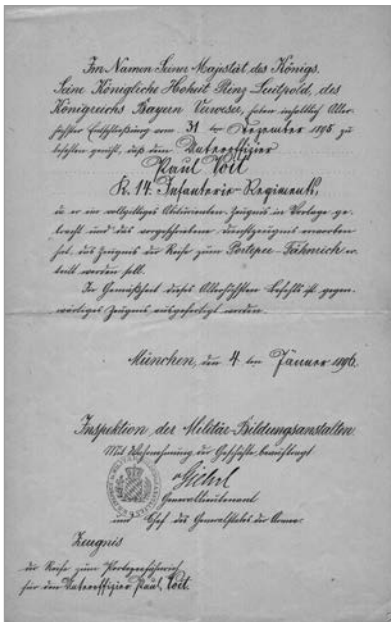 Im Namen Seiner Majestät des Königs.
Seine Königliche Hoheit Prinz Luitpold, des
Königreichs Bayern Verweser, haben inhaltlich Aller-
höchster Entschließung vom 31ten Dezember 1895 zu
befehlen geruht, daß dem Unteroffizier
Paul Voit
K. 14. Infanterie-Regiments,
da er ein vollgiltiges Abiturienten-Zeugnis in Vorlage ge-
bracht und das vorgeschriebene Dienstzeugnis erworben
hat, das Zeugnis der Reife zum Portepee-Fähnrich er-
teilt werden soll.
In Gemäßheit dieses Allerhöchsten Befehls ist gegen-
wärtiges Zeugnis ausgefertigt worden.
München, den 4ten Jänner 1896.
Inspektion der Militär-Bildungsanstalten.
Mit Wahrnehmung der Geschäfte beauftragt
Generallieutenant
und Chef des Generalstabes der Armee.
Zeugnis
der Reife zum Portepeefähnrich
für den Unteroffizier Paul Voit.